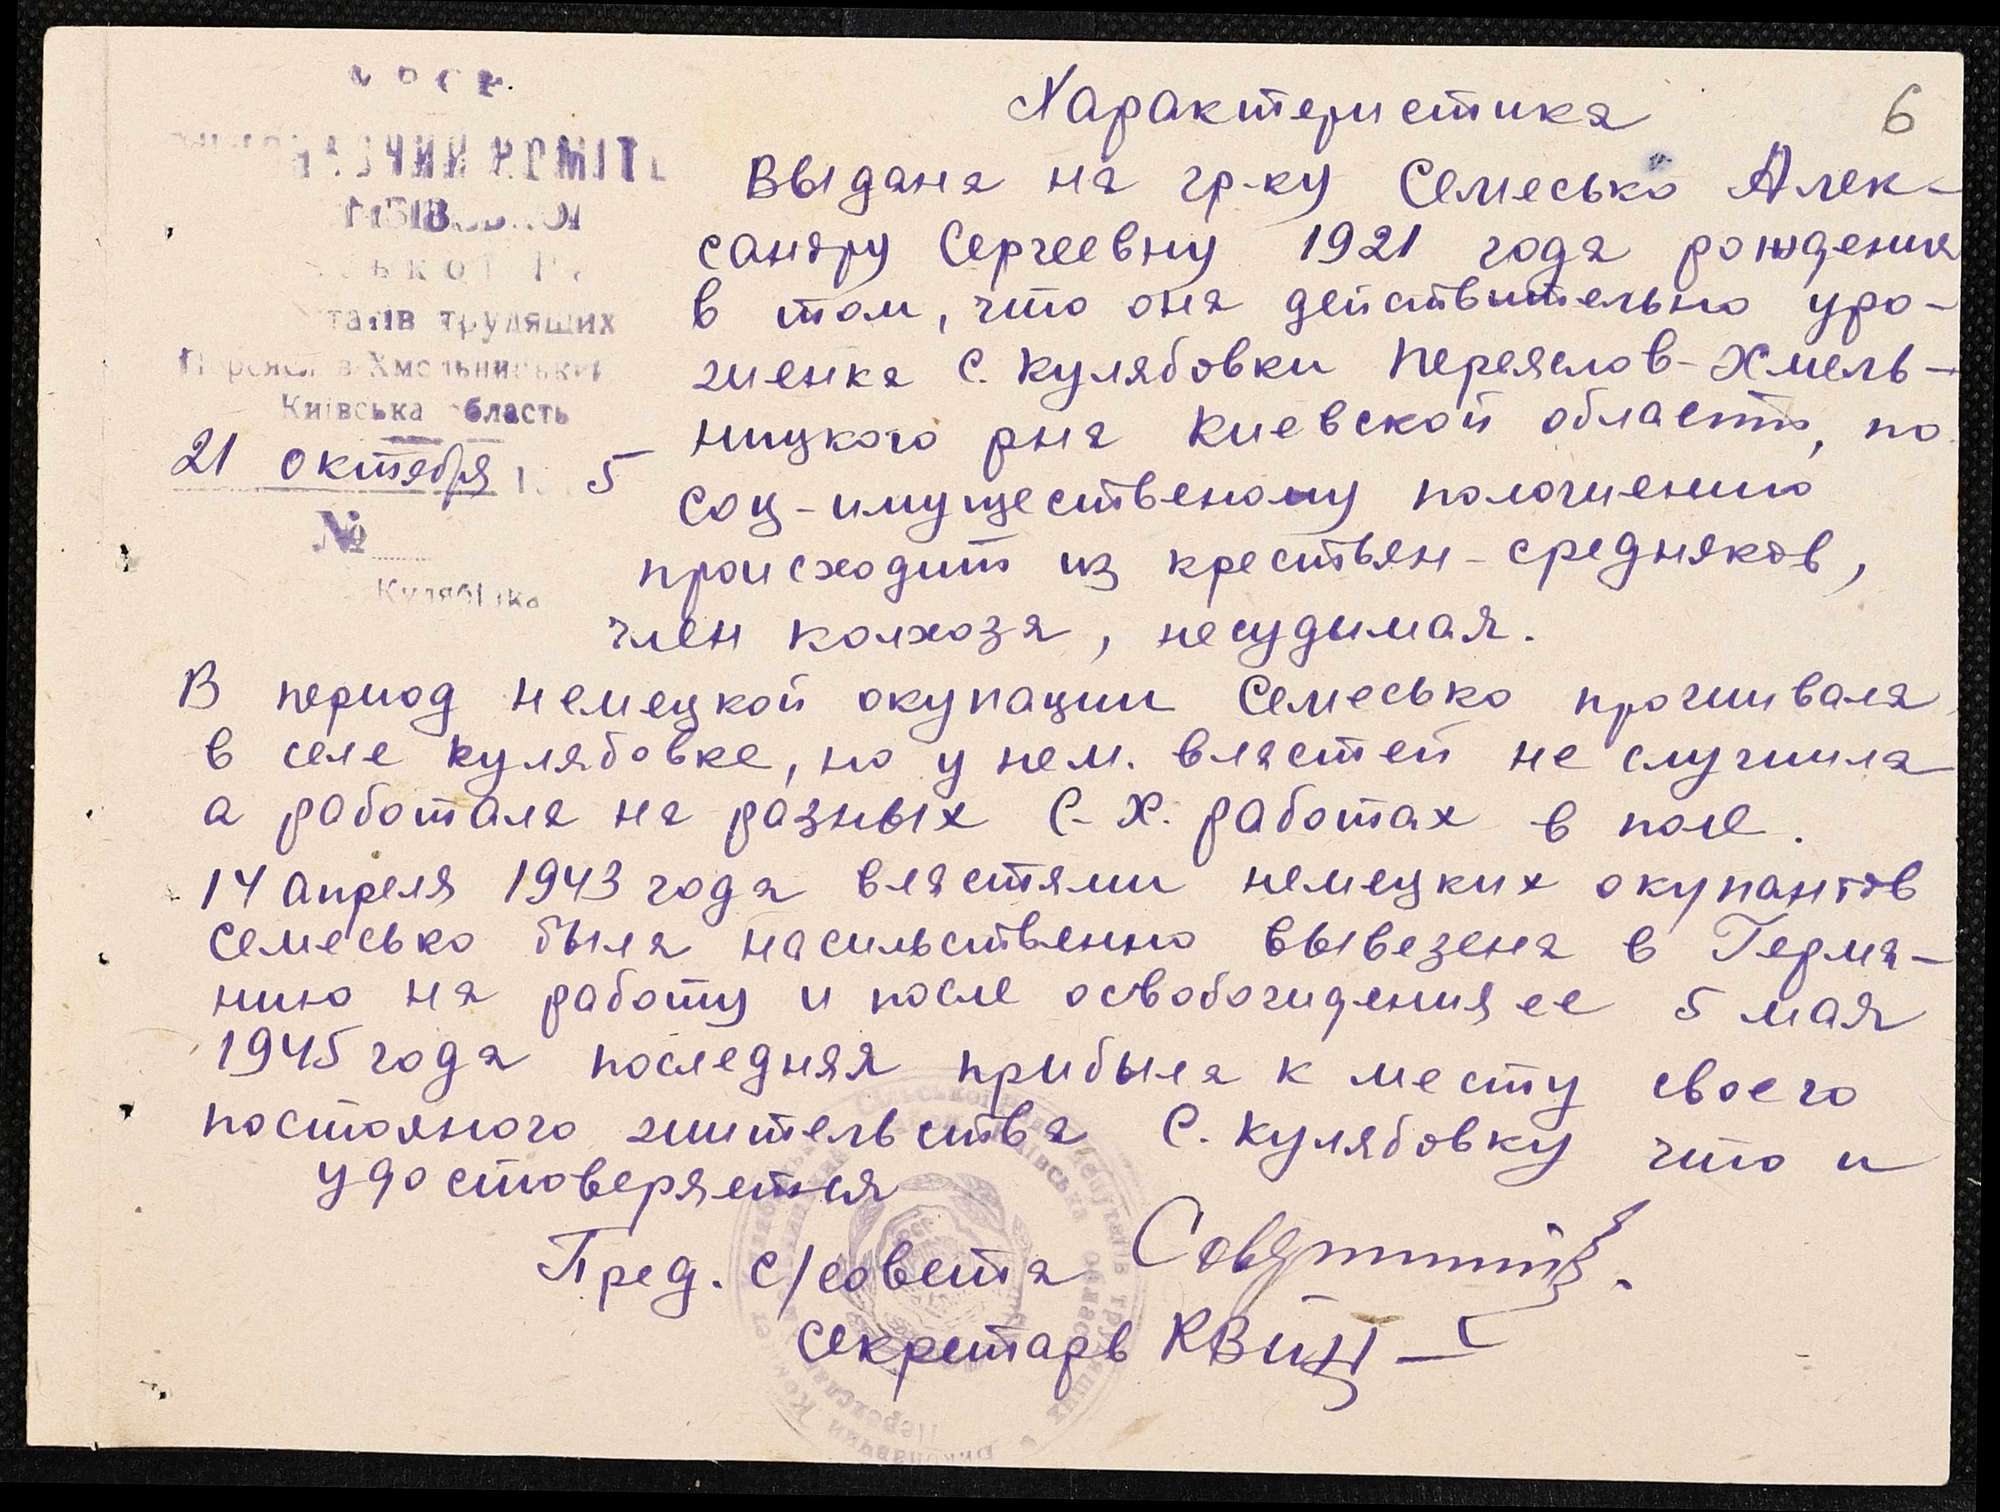 УРСР
ВИКОНАВЧИЙ КОМІТЕТ
депутатів трудящих
Переяслав Хмельницький
Київська область
21 октября 5
№
Кулябівка
6
Характеристика
Выдана на гр-ку Семесько Алек-
сандру Сергеевну 1921 года рождения
в том, что она действительно уро-
женка с. Кулябовки Переяслов-Хмель-
ницкого рна Киевской области, по
соц-имущественому положению
происходит из крестьян-средняков,
член колхоза, несудымая.
В период немецкой окупации Семесько проживала
в селе Кулябовке, но у нем. властей не служила
а работала на разных С-Х. работах в поле.
14 апреля 1943 года властями немецких окупантов
Семесько была насильственно вывезена в Герма-
нию на работу и после освобождения ее 5 мая
1945 года последняя прибыла к месту своего
постояного жительства с. Кулябовку что и
удостоверяется
Пред. с/совета
секретарь КВиц